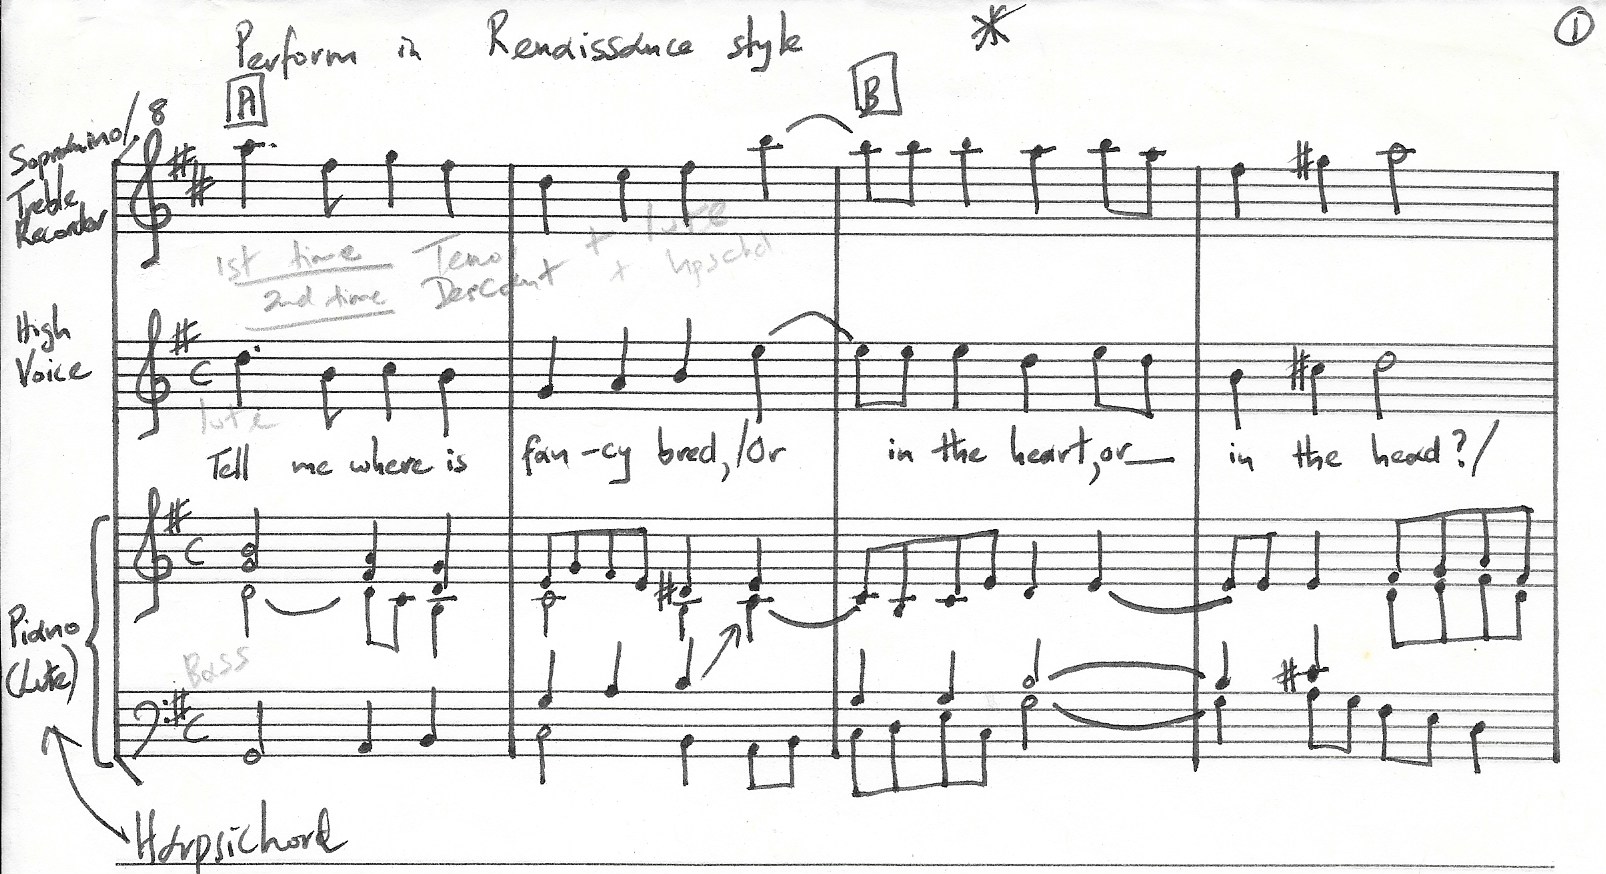 Perform in Renaissance style * ①
A B
8
Sopranino/
Treble
Recorder
1st time Teno + lute
2nd time Descant + hpschd
High
Voice
C
lute
Tell me where is fan-cy bred,/Or in the heart,or_ in the head?/
C
Piano
(Lute)
Bass
C
Harpsichord